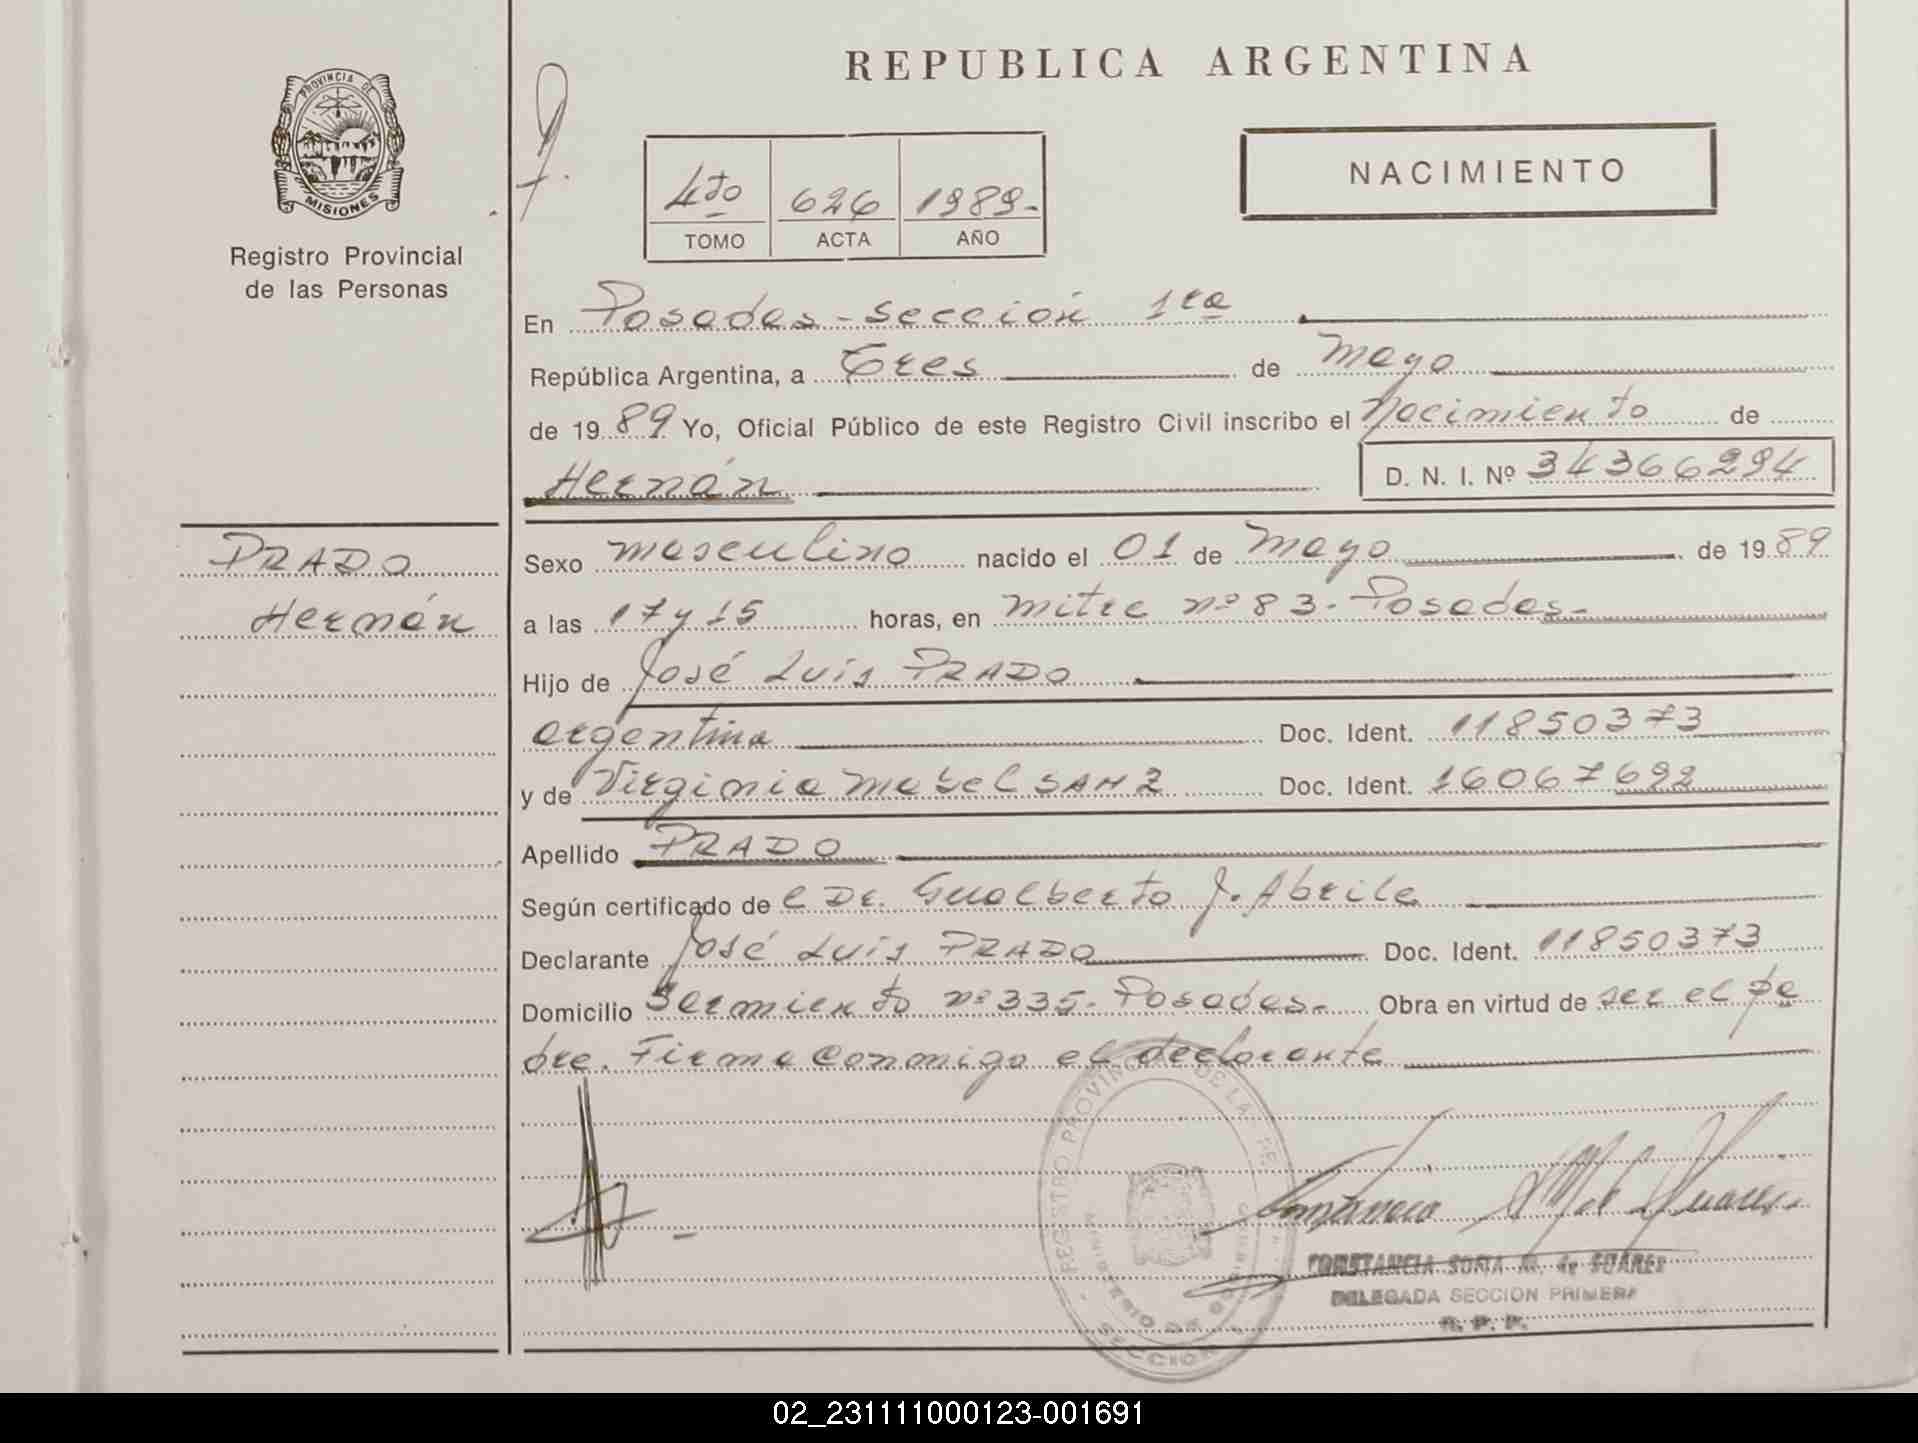 REPUBLICA ARGENTINA
PROVINCIA DE
MISIONES
Registro Provincial
de las Personas
4to 626 1989.-
TOMO ACTA AÑO
NACIMIENTO
En Posadas - sección 1ra
República Argentina, a Tres de Mayo
de 1989 Yo, Oficial Público de este Registro Civil inscribo el Nacimiento de
Hernán D. N. I. Nº 34366294
PRADO
Hernán
Sexo masculino nacido el 01 de Mayo de 1989
a las 17 y 15 horas, en Mitre nº 83. Posadas.-
Hijo de José Luis PRADO
argentina Doc. Ident. 11850373
y de Virginia Mabel SANZ Doc. Ident. 16067692
Apellido PRADO
Según certificado de l Dr. Gualberto J. Abrile
Declarante José Luis PRADO Doc. Ident. 11850373
Domicilio Sarmiento nº 335. Posadas.- Obra en virtud de ser el pa
dre. Firma conmigo el declarante
REGISTRO PROVINCIAL DE LAS
MINISTERIO DE GOBIERNO
SECCION 1
CONSTANCIA SOFIA M. de SUAREZ
DELEGADA SECCION PRIMERA
R. P. P.
02_231111000123-001691